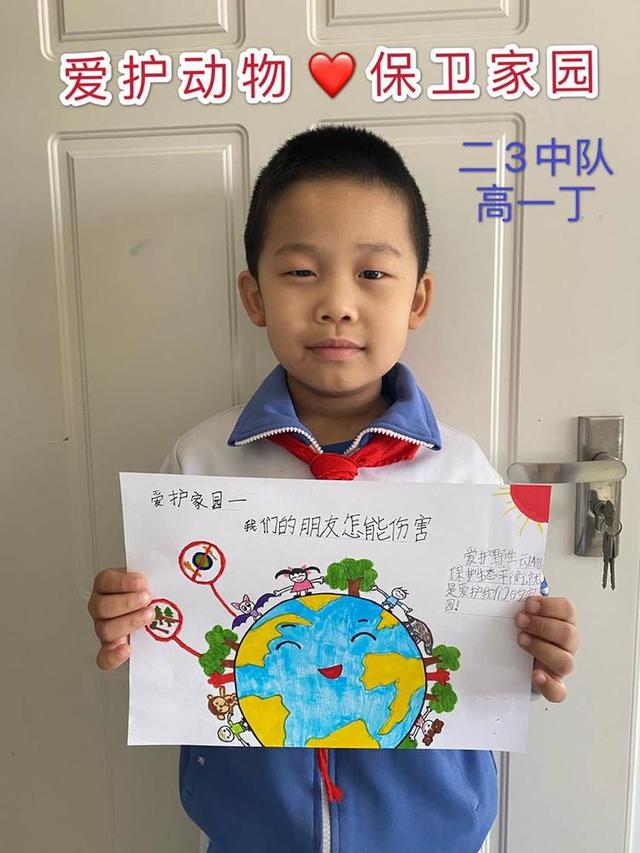 爱护动物❤️保卫家园
二3中队
高一丁
爱护家园一
我们的朋友怎能伤害
爱护野生动物
保护生态平衡就
是爱护我们的家
园!